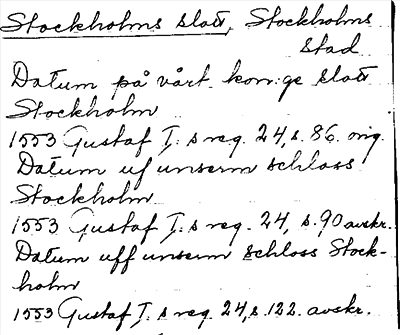 Stockholms slott, Stockholms
stad
Datum på vårt kon:ge slott
Stockholm
1553 Gustaf I:s reg. 24, s. 86. orig.
Datum uf unserm schloss
Stockholm
1553 Gustaf I:s reg. 24, s. 90 avskr.
Datum uff unserm schloss Stock-
holm
1553 Gustaf I:s reg. 24, s. 122. avskr.